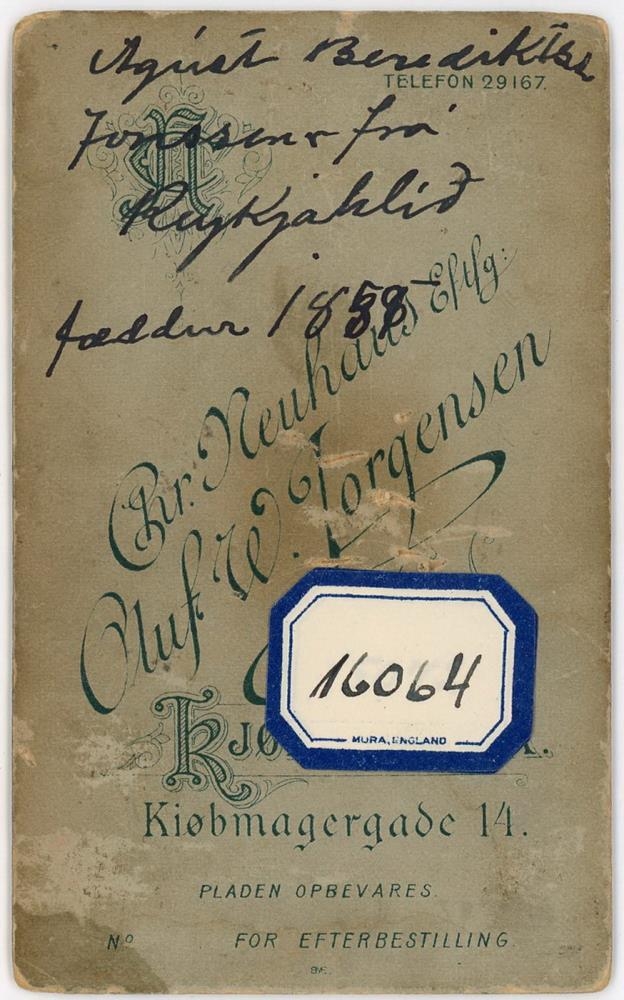 Agúst Benedikts
TELEFON 29167.
N
Jónssonar frá
Reykjahlíð
fæddur 1858
Chr. Neuhaus Eftfg:
Oluf W. Jørgensen
16064
MURA, ENGLAND
KJØ
Kiøbmagergade 14.
PLADEN OPBEVARES.
Nº FOR EFTERBESTILLING